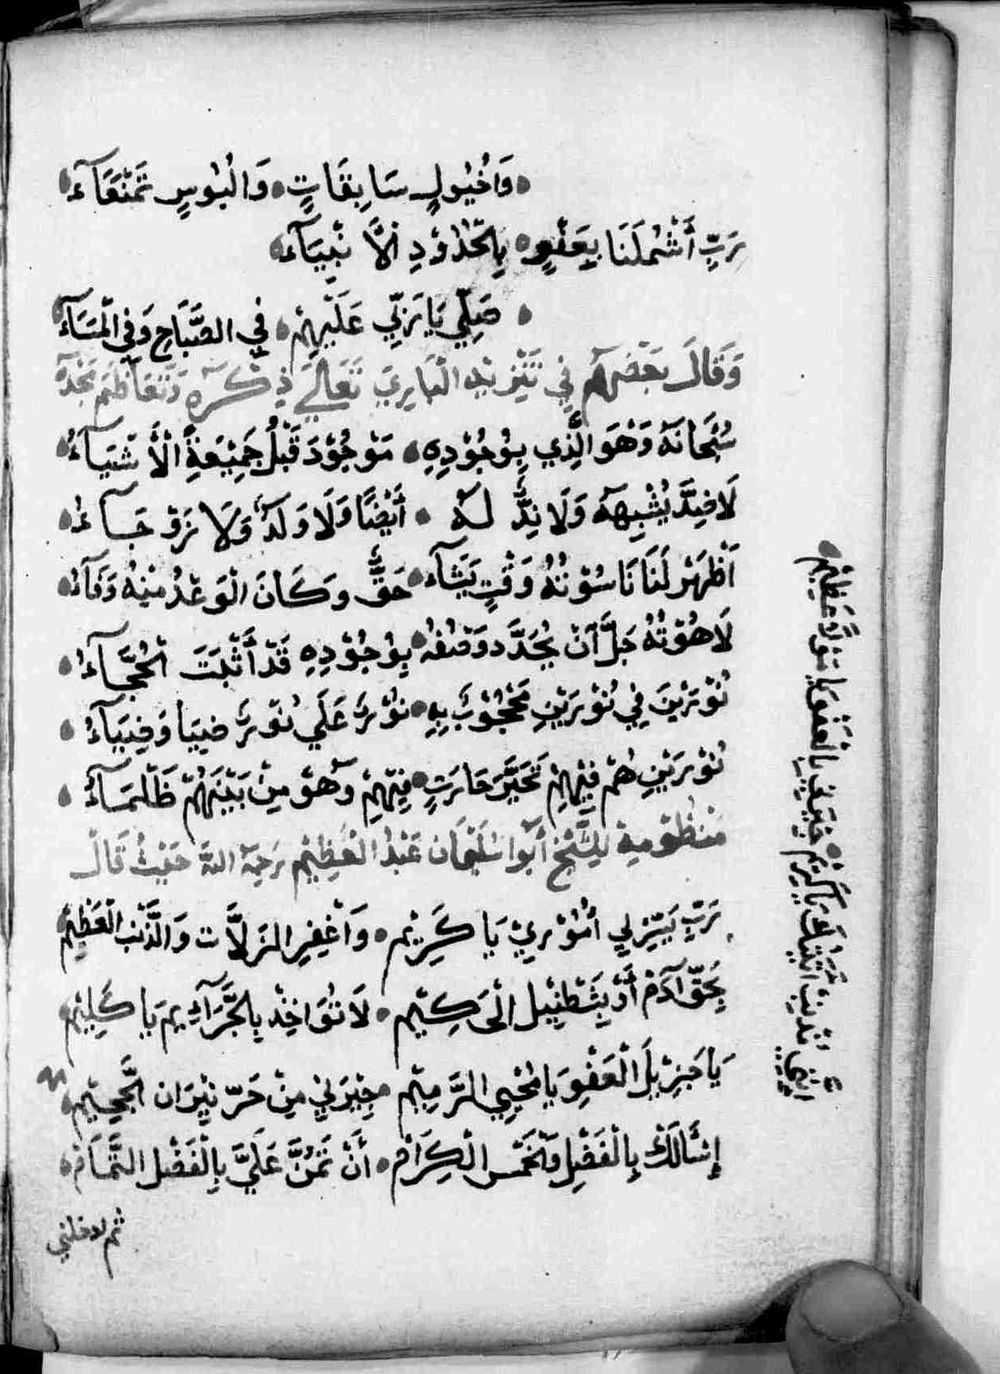 وَاخُيُولٍ سَابِقَاتٍ • وَالْبُوسِ تَمْنَعَآء
رَبِّ أَشْمِلَنَا بِعَفْوٍ • بِالْجُدُوْدِ الْاَنْبِيَآء
صَلِّي يَا رَبِّي عَلَيْهِمْ • فِي الصَّبَاحِ وَفِي الْمَسَآء
وَقَالَ بَعْضَهُم فِي تَنْزِيْهِ الْبَارِيَ تَعَالَي ذِكْرَهُ وَتَعَاظَمَ مَجْدَهُ
سُبْحَانَهُ وَهْوَ الَّذِي بِوُجُوْدِهِ • مَوْجُوْدَ قَبْلُ جَمِيْعَةِ الْأَشْيَآءُ
لَا ضِدَّ يُشْبِهَهُ وَلَا نِدٌّ لَهُ • أَيْضًا وَلَا وَلَدٌ وَلَا
اَظْهَرْ لَنَا نَاسُوْتُهُ وَقْتٍ يَشَآء • حَقٌّ وَكَانَ الْوَعْدُ مِنْهُ وَفَآءُ
لَاهُوْتُهُ جَلَّ اَنْ يُحَدَّد وَصْفُهُ • بِوُجُوْدِهِ قَدْ أَثْبَتَ الْحُجَّآءُ
نُوْرَيْنَ فِي نُوْرَيْنِ مَحْجُوْبٌ بِهِ • نُوْرٌ عَلَي نُوْرٌ ضِيَا وَضِيَآءُ
نُوْرَيْنِ هُمْ فِيْهِمْ تَحَيَّرَ حَارَتٍ • فِيْهِمْ وَهْوَ مِنْ بَيْنَهُمْ ظَلْمَآءُ
مَنْظُوْمِة لِلشَّيْخ أَبُوا سُلَيْمَان عَبْدُ الْعَظِيْم رَحِمَهُ اللَّهُ حَيْثُ قَالَ
رَبِّ يَسِّرْ لِي أُمُوْرِيْ يَا كَرِيْم • وَاَغْفِرِ الزَلَّات وَالذَّنْب الْعَظِيْمْ
بِحَقّ آدَمْ أَوْ بِشَطْنِيْل الْحَكِيْم • لَا تُوَاخِذْ بِالْجَرَآئِيم يَا كَلِيْم
يَا جَزِيْلَ الْعَفْو يَا مُحْيِي الرَّمِيْم • مجِيْرَنِي مِنْ حَرّ نِيْرَان الْجَحِيْم
إِسْأَلَكْ بِالْفَضْلِ وَالْخَمْس الْكِرَامْ • أَنْ تَمُنَّ عَلَيَّ بِالْفَضْل التَّمَامْ
ثم ادخلني
إِنَّنِي مُذْنِب أَتَيْتُك يَا كَرِيْم • بِالْعَفْو يَا مَوْلًا عَظِيْم